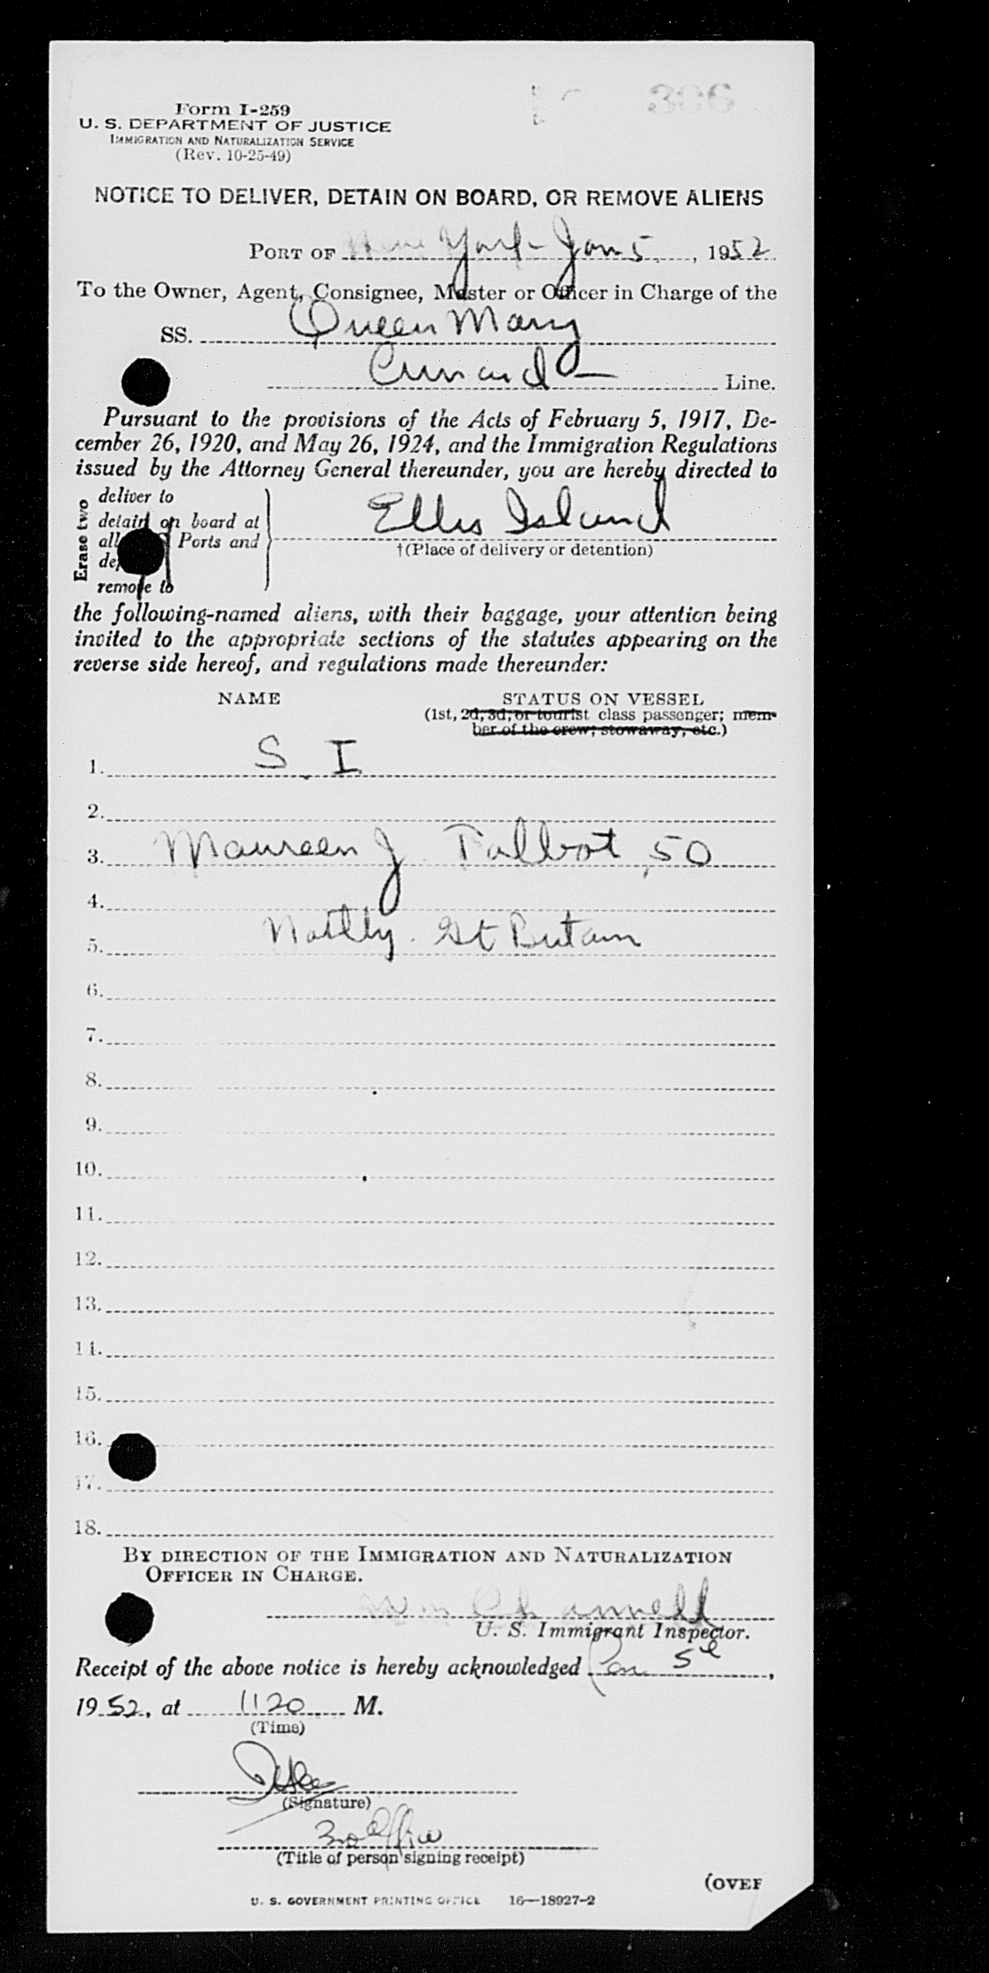 306
Form I-259
U. S. DEPARTMENT OF JUSTICE
IMMIGRATION AND NATURALIZATION SERVICE
(Rev. 10-25-49)
NOTICE TO DELIVER, DETAIN ON BOARD, OR REMOVE ALIENS
PORT OF New York Jan 5, 1952
To the Owner, Agent, Consignee, Master or Officer in Charge of the
SS. Queen Mary
Cunard Line.
Pursuant to the provisions of the Acts of February 5, 1917, De-
cember 26, 1920, and May 26, 1924, and the Immigration Regulations
issued by the Attorney General thereunder, you are hereby directed to
Erase two
deliver to
detain on board at
all Ports and
remove to
Ellis Island
†(Place of delivery or detention)
the following-named aliens, with their baggage, your attention being
invited to the appropriate sections of the statutes appearing on the
reverse side hereof, and regulations made thereunder:
NAME STATUS ON VESSEL
(1st, 2d, 3d, or tourist class passenger; mem-
ber of the crew; stowaway, etc.)
1. S. I
2.
3. Maureen J. Talbot, 50
4.
5. Natlty. Gt Britain
6.
7.
8.
9.
10.
11.
12.
13.
14.
15.
16.
17.
18.
BY DIRECTION OF THE IMMIGRATION AND NATURALIZATION
OFFICER IN CHARGE.
U. S. Immigrant Inspector.
Receipt of the above notice is hereby acknowledged Jan 5
1952, at 1120 M.
(Time)
(Signature)
(Title of person signing receipt)
(OVER
U. S. GOVERNMENT PRINTING OFFICE 16—18927-2